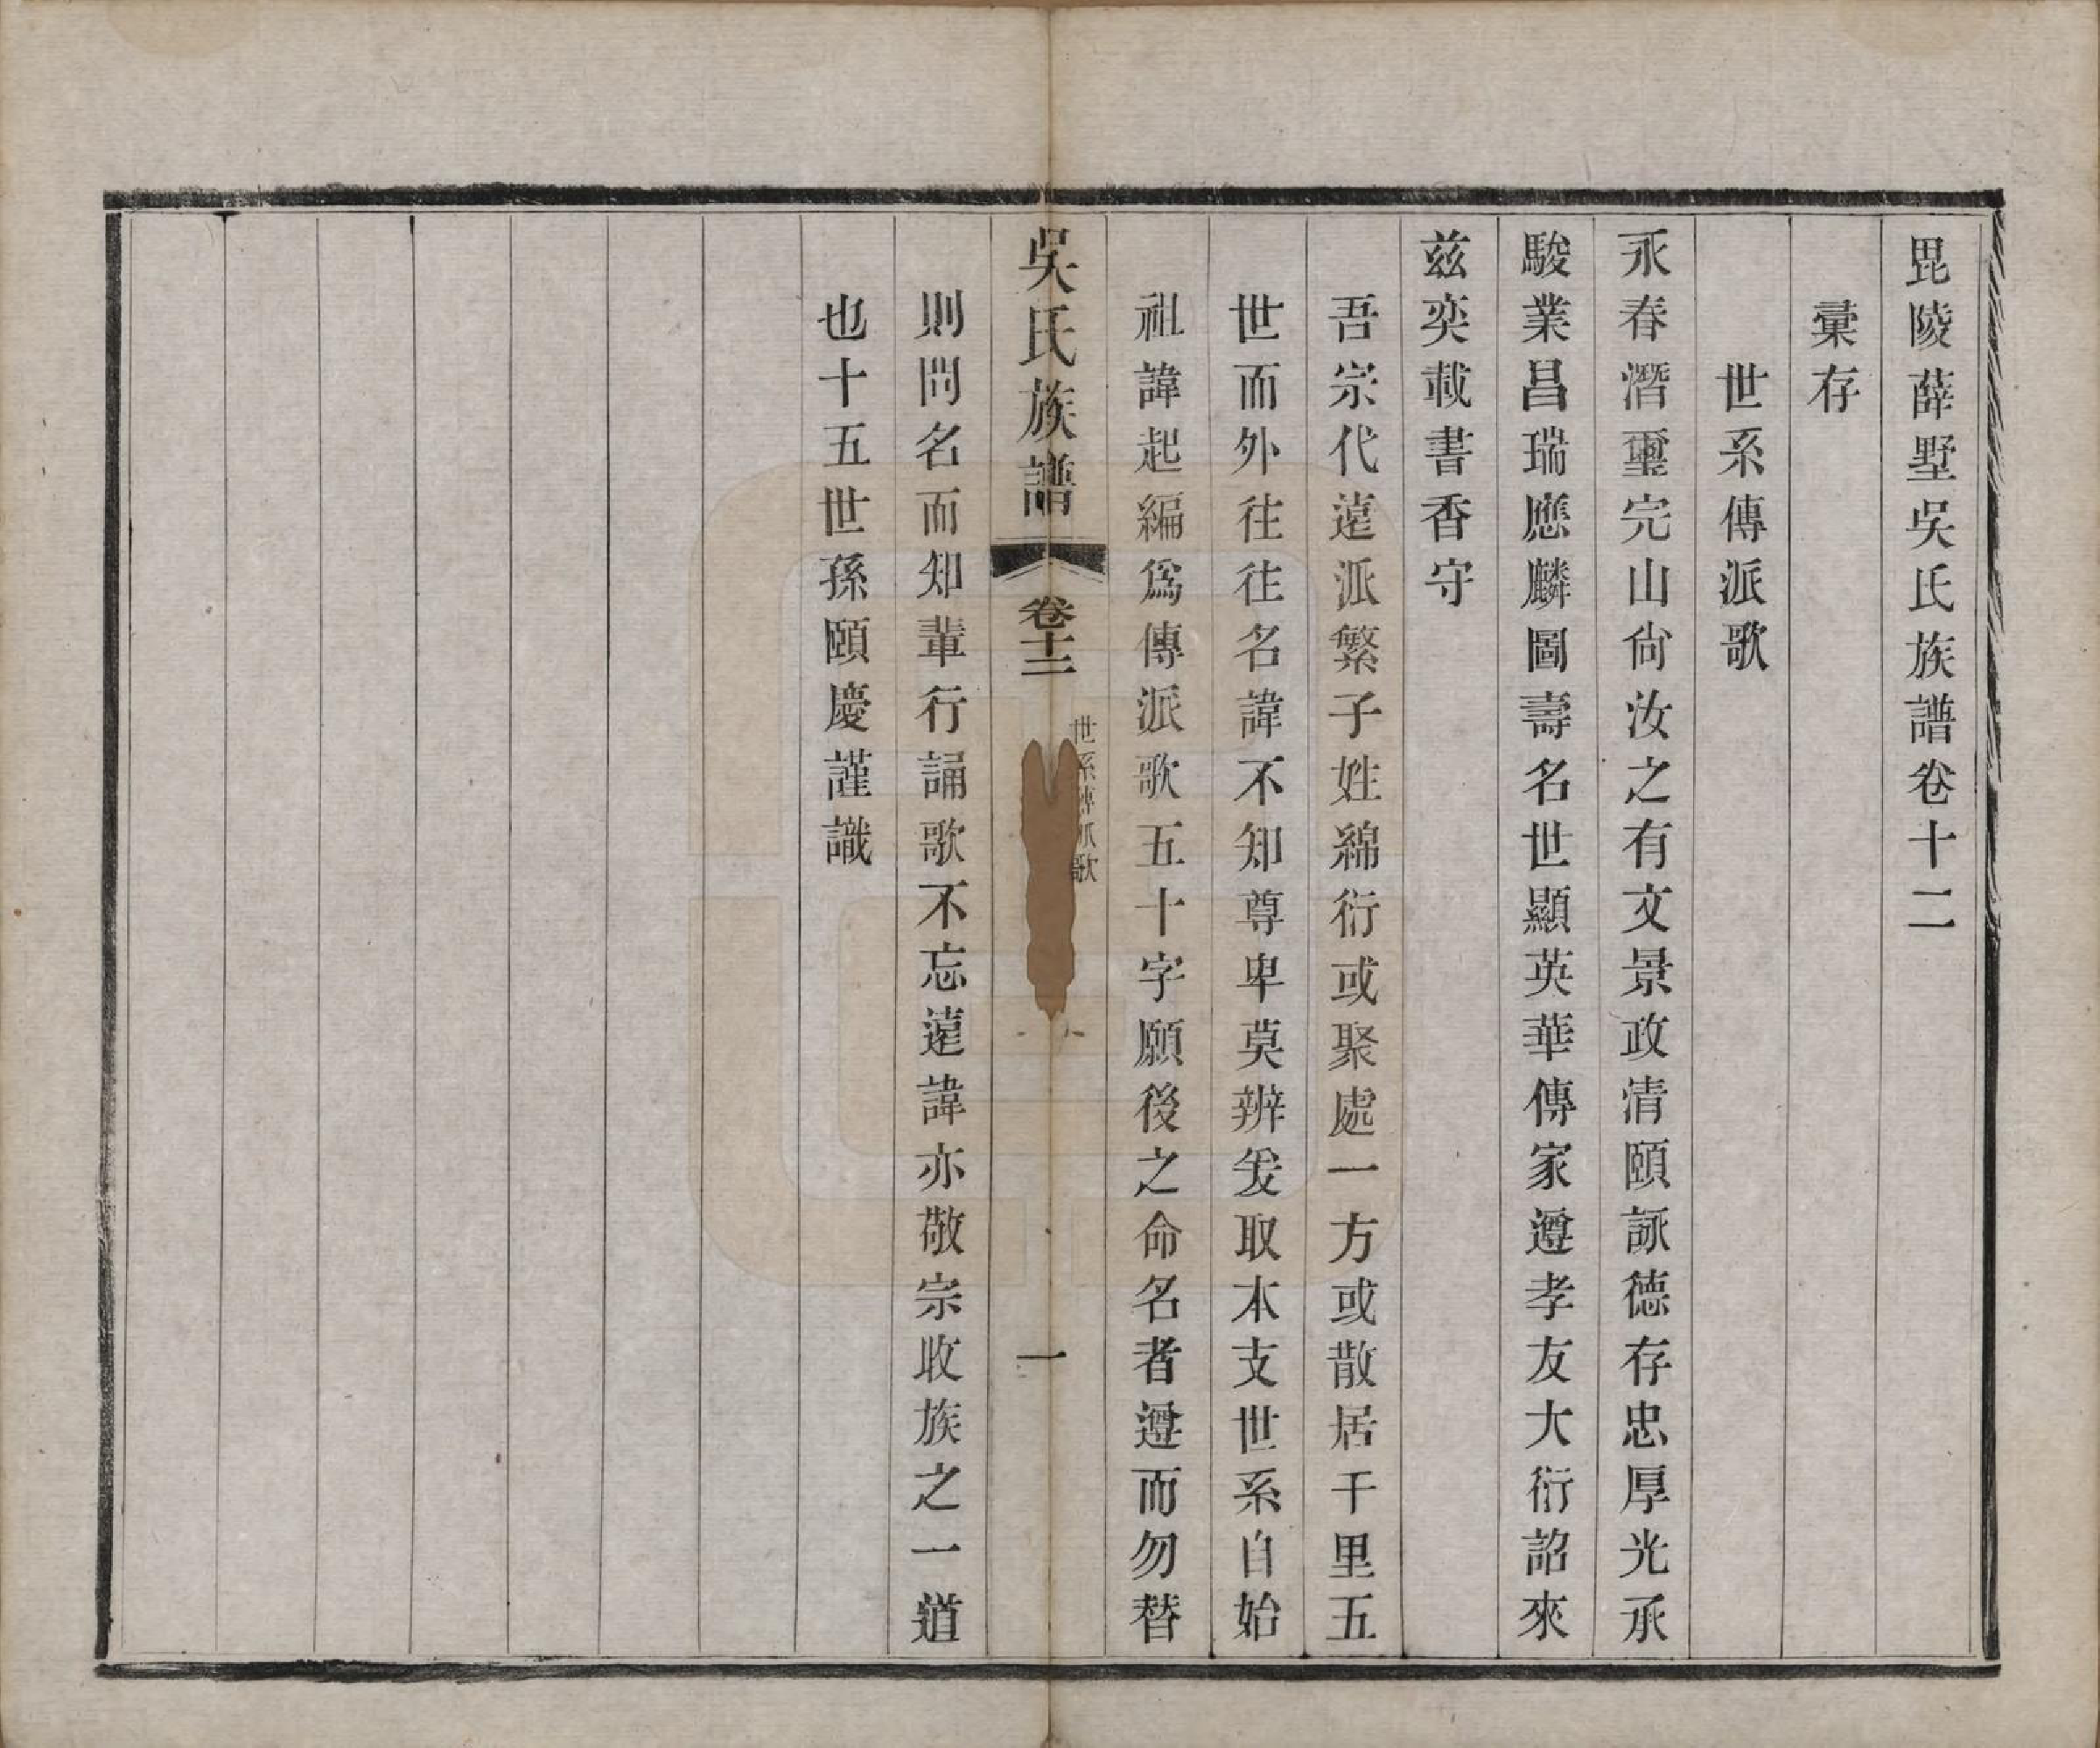 毘陵薛墅吳氏族譜卷十二
彙存
世系傳派歌
永春潛璽完山尙汝之有文景政清頤詠德存忠厚光承
駿業昌瑞應麟圖壽名世顯英華傳家遵孝友大衍詔來
兹奕載書香守
吾宗代遠派繁子姓綿衍或聚處一方或散居千里五
世而外往往名諱不知尊卑莫辨爰取本支世系自始
祖諱起編爲傳派歌五十字願後之命名者遵而勿替
吳氏族譜
卷十二
世系傳派歌
一
則問名而知輩行誦歌不忘遠諱亦敬宗收族之一道
也十五世孫頤慶謹識